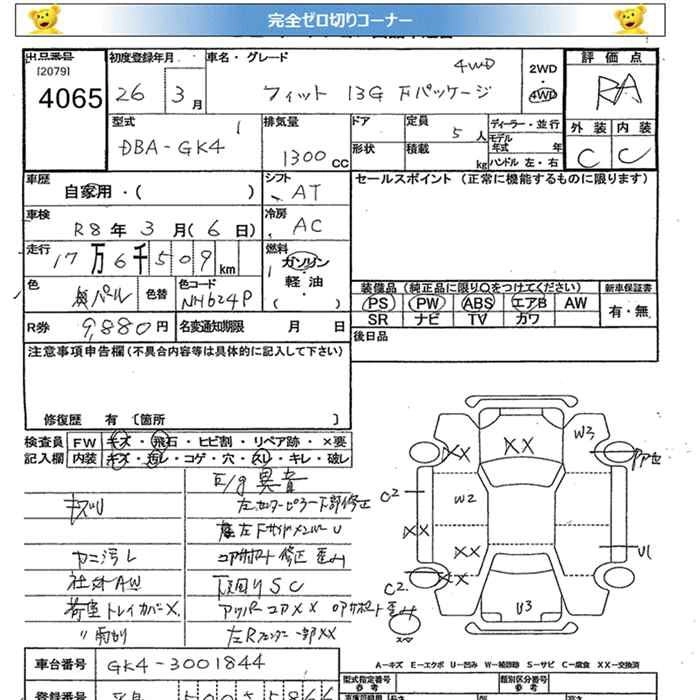 完全ゼロ切りコーナー
出品番号 初度登録年月 車名・グレード 4WD 評価点
[2079]
4065 26年 3月 フィット 13G Fパッケージ 2WD・4WD RA
型式 排気量 ドア 定員 5人 ディーラー・並行 外装 内装
DBA-GK4 1300cc 形状 積載 kg モデル年式 年 ハンドル 左・右 C C
車歴 シフト セールスポイント (正常に機能するものに限ります)
自家用・( ) AT
車検 冷房
R8年 3月(6日) AC
走行 燃料
17万6千509km ガソリン・軽油・( )
色 色替 色コード 装備品 (純正品に限り○をつけてください) 新車保証書
パール NH624P PS PW ABS エアB AW 有・無
R券 9,880円 名変通知期限 月 日 SR ナビ TV カワ
注意事項申告欄(不具合内容等は具体的に記入して下さい) 後日品
修復歴 有 〔箇所 〕
検査員 FW キズ・飛石・ヒビ割・リペア跡・×要
記入欄 内装 キズ・汚レ・コゲ・穴・スレ・キレ・破レ
E/g異音
キズU 左センターピラー下部修正
左Fサイドメンバーu
ヤニ汚レ コアサポート修正 歪み
社外AW 下回りSC
荷室トレイカバー× アッパーコア×× ロアサポート歪み
〃 雨切り 左Rフェンダー一部××
×× ×× W3
C2 W2
×× ×× U1
C2 ×× U3
A-キズ E-エクボ U-凹み W-補修跡 S-サビ C-腐食 XX-交換済
車台番号 GK4-3001844 型式指定番号 類別区分番号
参考 参考
登録番号 500 5866